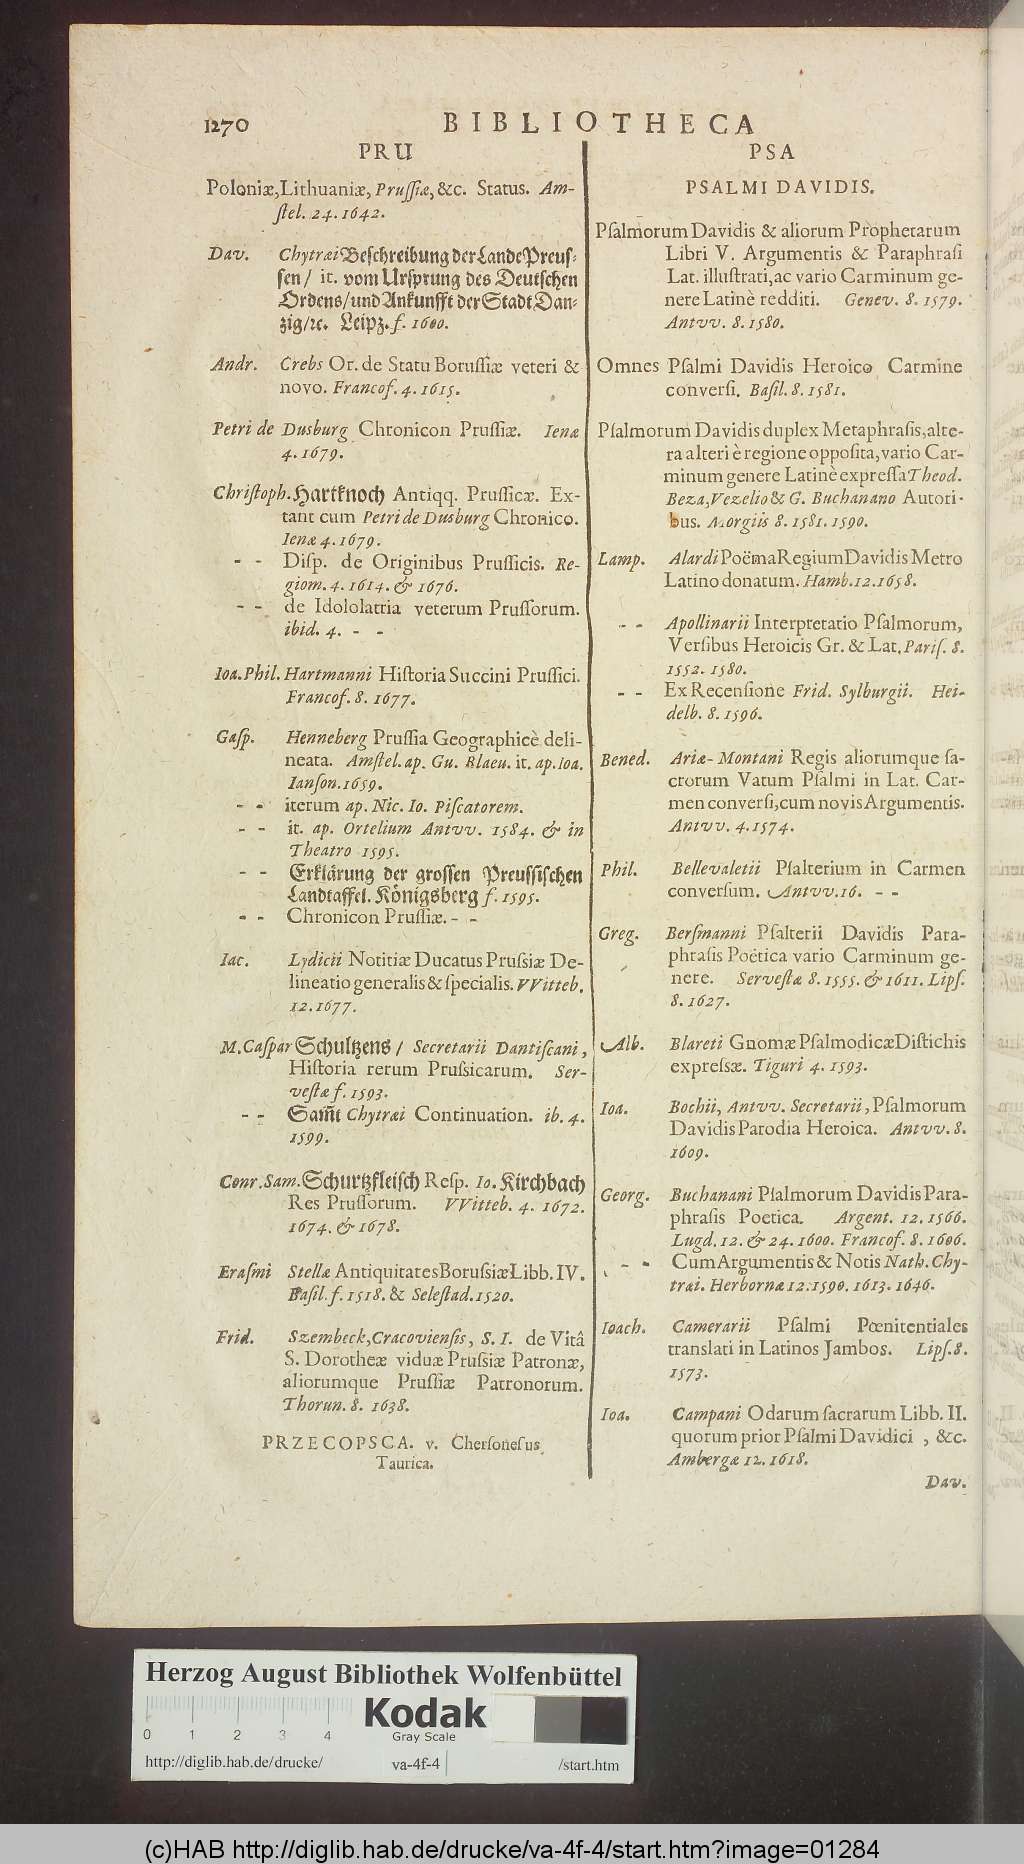 1270
BIBLIOTHECA
PRU
Poloniæ, Lithuaniæ, Pruſſiæ, &c. Status. Am-
ſtel. 24. 1642.
Dav. Chytræi Beſchreibung der Lande Preuſ-
ſen / it. vom Urſprung des Deutſchen
Ordens / und Ankunfft der Stadt Dan-
zig / ꝛc. Leipz. f. 1600.
Andr. Crebs Or. de Statu Boruſſiæ veteri &
novo. Francof. 4. 1615.
Petri de Dusburg Chronicon Pruſſiæ. Ienæ
4. 1679.
Chriſtoph. Hartknoch Antiqq. Pruſſicæ. Ex-
tant cum Petri de Dusburg Chronico.
Ienæ 4. 1679.
- - Diſp. de Originibus Pruſſicis. Re-
giom. 4. 1614. & 1676.
- - de Idololatria veterum Pruſſorum.
ibid. 4. - -
Ioa. Phil. Hartmanni Hiſtoria Succini Pruſſici.
Francof. 8. 1677.
Gaſp. Henneberg Pruſſia Geographicè deli-
neata. Amſtel. ap. Gu. Blaeu. it. ap. Ioa.
Ianſon. 1659.
- - iterum ap. Nic. Io. Piſcatorem.
- - it. ap. Ortelium Antvv. 1584. & in
Theatro 1595.
- - Erklärung der groſſen Preuſſiſchen
Landtaffel. Königsberg f. 1595.
- - Chronicon Pruſſiæ. - -
Iac. Lydicii Notitiæ Ducatus Pruſsiæ De-
lineatio generalis & ſpecialis. VVitteb.
12. 1677.
M. Caſpar Schultzens / Secretarii Dantiſcani,
Hiſtoria rerum Pruſsicarum. Ser-
veſtæ f. 1593.
- - Sam̃t Chytræi Continuation. ib. 4.
1599.
Conr. Sam. Schurtzfleiſch Reſp. Io. Kirchbach
Res Pruſſorum. VVitteb. 4. 1672.
1674. & 1678.
Eraſmi Stellæ Antiquitates Boruſsiæ Libb. IV.
Baſil. f. 1518. & Seleſtad. 1520.
Frid. Szembeck, Cracovienſis, S. I. de Vitâ
S. Dorotheæ viduæ Pruſsiæ Patronæ,
aliorumque Pruſſiæ Patronorum.
Thorun. 8. 1638.
PRZECOPSCA. v. Cherſoneſus
Taurica.
PSA
PSALMI DAVIDIS.
Pſalmorum Davidis & aliorum Prophetarum
Libri V. Argumentis & Paraphraſi
Lat. illuſtrati, ac vario Carminum ge-
nere Latinè redditi. Genev. 8. 1579.
Antvv. 8. 1580.
Omnes Pſalmi Davidis Heroico Carmine
converſi. Baſil. 8. 1581.
Pſalmorum Davidis duplex Metaphraſis, alte-
ra alteri è regione oppoſita, vario Car-
minum genere Latinè expreſſa Theod.
Beza, Vezelio & G. Buchanano Autori-
bus. Morgiis 8. 1581. 1590.
Lamp. Alardi Poëma Regium Davidis Metro
Latino donatum. Hamb. 12. 1658.
- - Apollinarii Interpretatio Pſalmorum,
Verſibus Heroicis Gr. & Lat. Pariſ. 8.
1552. 1580.
- - Ex Recenſione Frid. Sylburgii. Hei-
delb. 8. 1596.
Bened. Ariæ-Montani Regis aliorumque ſa-
crorum Vatum Pſalmi in Lat. Car-
men converſi, cum novis Argumentis.
Antvv. 4. 1574.
Phil. Bellevaletii Pſalterium in Carmen
converſum. Antvv. 16. - -
Greg. Berſmanni Pſalterii Davidis Para-
phraſis Poëtica vario Carminum ge-
nere. Serveſtæ 8. 1555. & 1611. Lipſ.
8. 1627.
Alb. Blareti Gnomæ Pſalmodicæ Diſtichis
expreſsæ. Tiguri 4. 1593.
Ioa. Bochii, Antvv. Secretarii, Pſalmorum
Davidis Parodia Heroica. Antvv. 8.
1609.
Georg. Buchanani Pſalmorum Davidis Para-
phraſis Poetica. Argent. 12. 1566.
Lugd. 12. & 24. 1600. Francof. 8. 1606.
- - Cum Argumentis & Notis Nath. Chy-
træi. Herbornæ 12. 1590. 1613. 1646.
Ioach. Camerarii Pſalmi Pœnitentiales
translati in Latinos Jambos. Lipſ. 8.
1573.
Ioa. Campani Odarum ſacrarum Libb. II.
quorum prior Pſalmi Davidici, &c.
Ambergæ 12. 1618.
Dav.
Herzog August Bibliothek Wolfenbüttel
0 1 2 3 4
Kodak
Gray Scale
http://diglib.hab.de/drucke/ va-4f-4 /start.htm
(c)HAB http://diglib.hab.de/drucke/va-4f-4/start.htm?image=01284